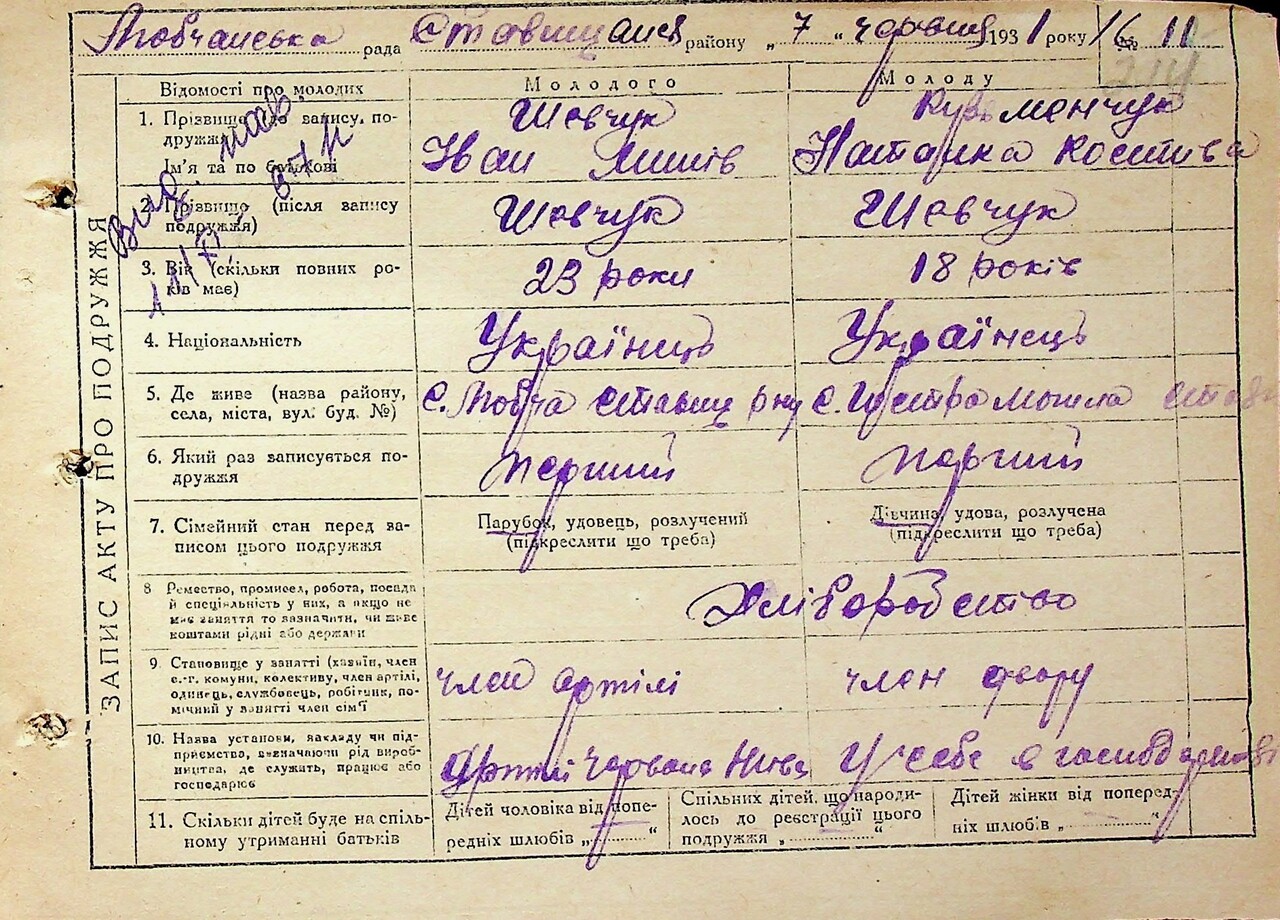 Любчанська рада Ставищанськ району „ 7 “ червня 1931 року № 11
16
ЗАПИС АКТУ ПРО ПОДРУЖЖЯ
Відомості про молодих
Молодого
Молоду
1. Прізвище (до запису, по-
дружжя)
Ім'я та по батькові
Шевчук
Іван
Кузьменчук
Наталка Костива
2. Прізвище (після запису
подружжя)
Шевчук
Шевчук
3. Вік (скільки повних ро-
ків має)
23 роки
18 років
4. Національність
Українець
Українець
5. Де живе (назва району,
села, міста, вул. буд. №)
с. Любча Ставищ р-ну
с. Гостра Могила Става
6. Який раз записується по-
дружжя
перший
перший
7. Сімейний стан перед за-
писом цього подружжя
Парубок, удовець, розлучений
(підкреслити що треба)
Дівчина, удова, розлучена
(підкреслити що треба)
8 Ремество, промисел, робота, посада
й спеціяльність у них, а якщо не
має заняття то зазначити, чи живе
коштами рідні або держави
Хліборобство
9. Становище у занятті (хазяїн, член
с.-г. комуни, колективу, член артілі,
одинець, службовець, робітник, по-
мічний у занятті член сім'ї
член артілі
член двору
10. Назва установи, закладу чи під-
приємства, зазначаючи рід вироб-
ництва, де служить, працює або
господарює
Артіл Червона Нива
У себе в господарстві
11. Скільки дітей буде на спіль-
ному утриманні батьків
Дітей чоловіка від попе-
редніх шлюбів „ — “
Спільних дітей, що народи-
лось до реєстрації цього
подружжя „ — “
Дітей жінки від поперед-
ніх шлюбів „ — “